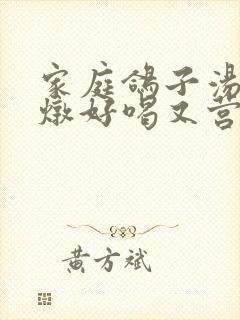 家庭鸽子汤
燉好喝又营
黄方斌